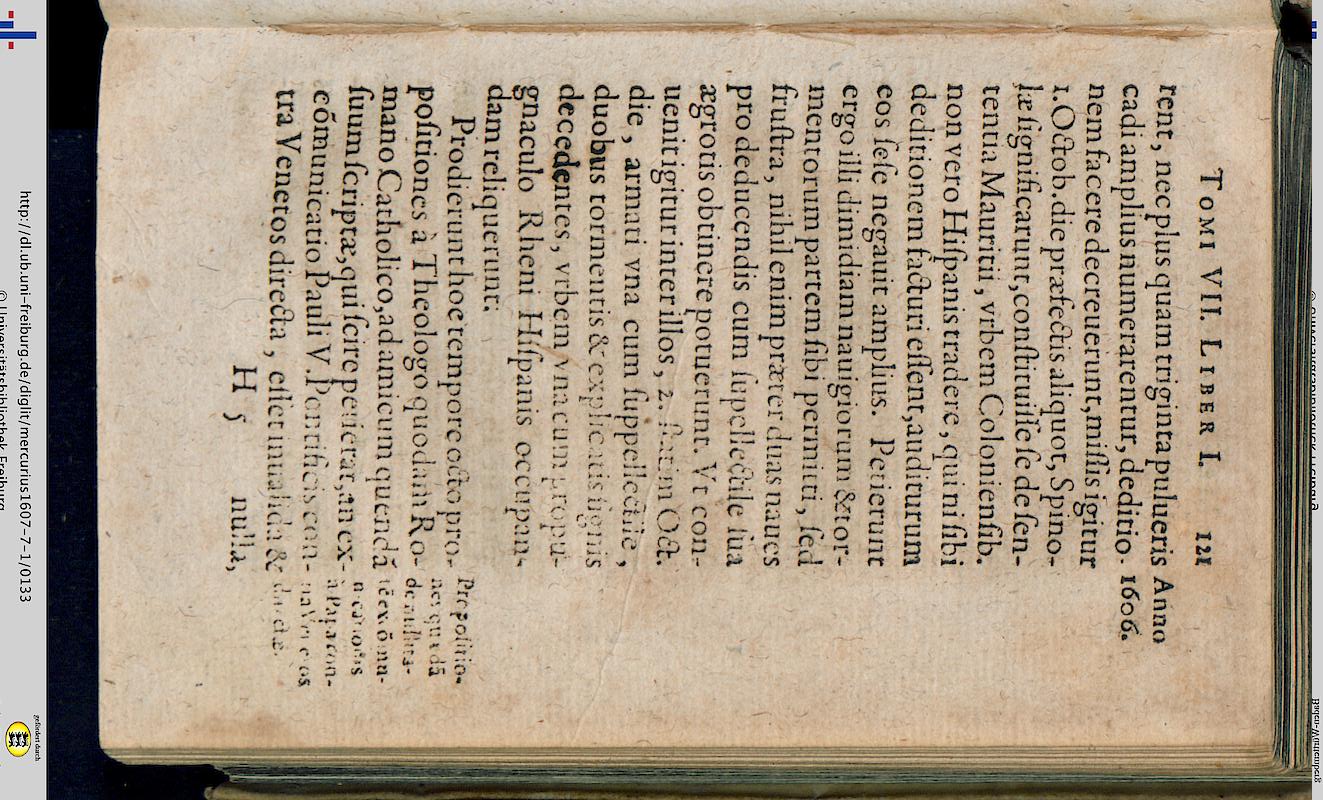 TOMI VII. LIBER I. 121
rent, nec plus quam triginta pulueris Anno
cadi amplius numerarentur, deditio- 1606.
nem facere decreuerunt, missis igitur
1. Octob. die præfectis aliquot, Spino-
læ significarunt, constituisse se de sen-
tentia Mauritii, vrbem Coloniensib.
non vero Hispanis tradere, qui ni sibi
deditionem facturi essent, auditurum
eos sese negauit amplius. Petierunt
ergo illi dimidiam nauigiorum & tor-
mentorum partem sibi permitti, sed
frustra, nihil enim præter duas naues
pro deducendis cum supellectile sua
ægrotis obtinere potuerunt. Vt con-
uenit igitur inter illos, 2. statim Oct.
die, armati vna cum suppellectile,
duobus tormentis & explicatis signis
decedentes, vrbem vna cum propu-
gnaculo Rheni Hispanis occupan-
dam reliquerunt:
Prodierunt hoc tempore octo pro-
positiones à Theologo quodam Ro-
mano Catholico, ad amicum quendã
suum scriptæ, qui scire petierat, an ex-
cõmunicatio Pauli V. Pontificis con-
tra Venetos directa, esset inualida &
Propositio-
nes quædã
de nullita-
à Papa con-
H 5 nulla,
http://dl.ub.uni-freiburg.de/diglit/mercurius1607-7-1/0133
© Universitätsbibliothek Freiburg
gefördert durch